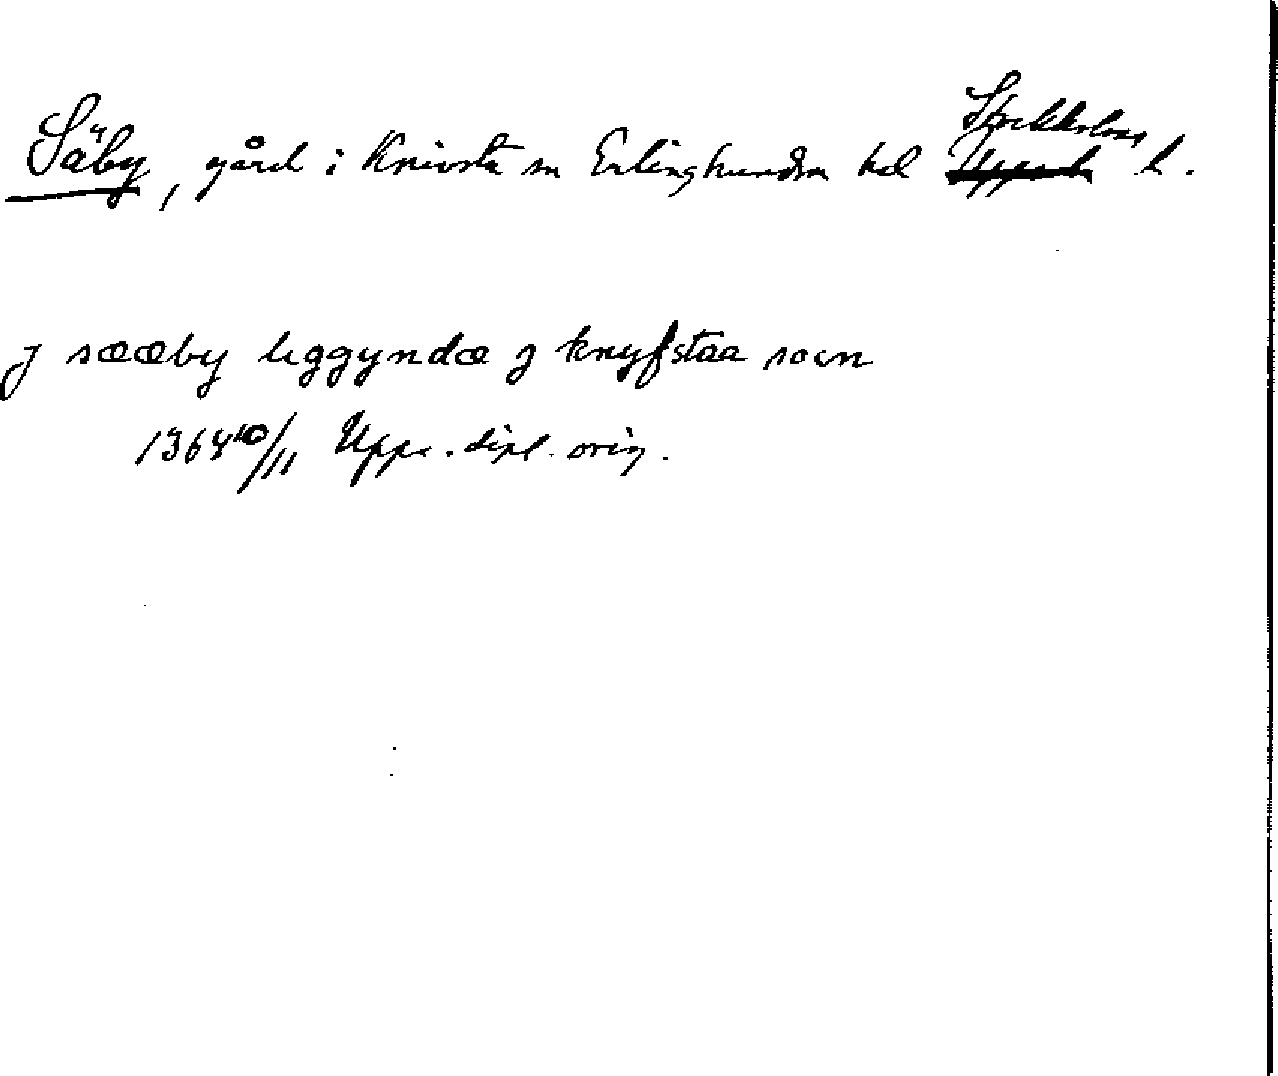 Säby, gård i Knivsta sn Erlinghundra hd Stockholms l.
j sææby liggyndæ j knyfstaa socn
1364 10/11 Upps. dipl. orig.